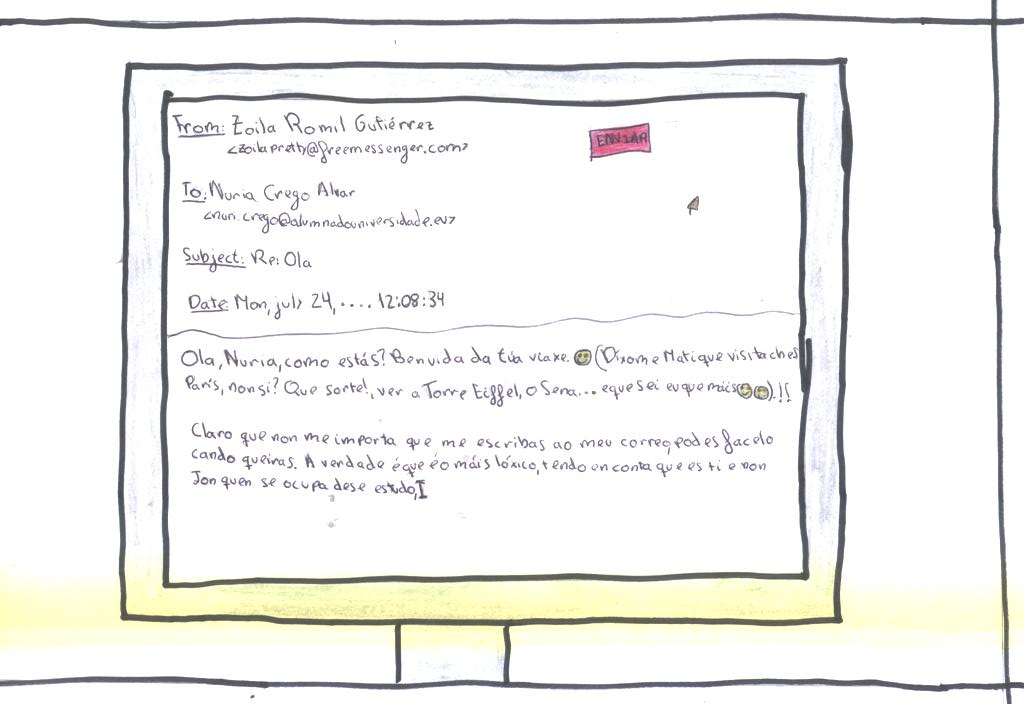 From: Zoila Romil Gutiérrez
<zoilapretty@freemessenger.com>
ENVIAR
To: Nuria Crego Alvar
<nuri.crego@alumnadouniversidade.eu>
Subject: Re: Ola
Date: Mon, july 24, .... 12:08:34
Ola, Nuria, como estás? Benvida da túa viaxe. (Díxome Mati que visitaches
París, non si? Que sorte!, ver a Torre Eiffel, o Sena... e que sei eu que máis).!!
Claro que non me importa que me escribas ao meu correo, podes facelo
cando queiras. A verdade é que é o máis lóxico, tendo en conta que es ti e non
Jon quen se ocupa dese estudo,